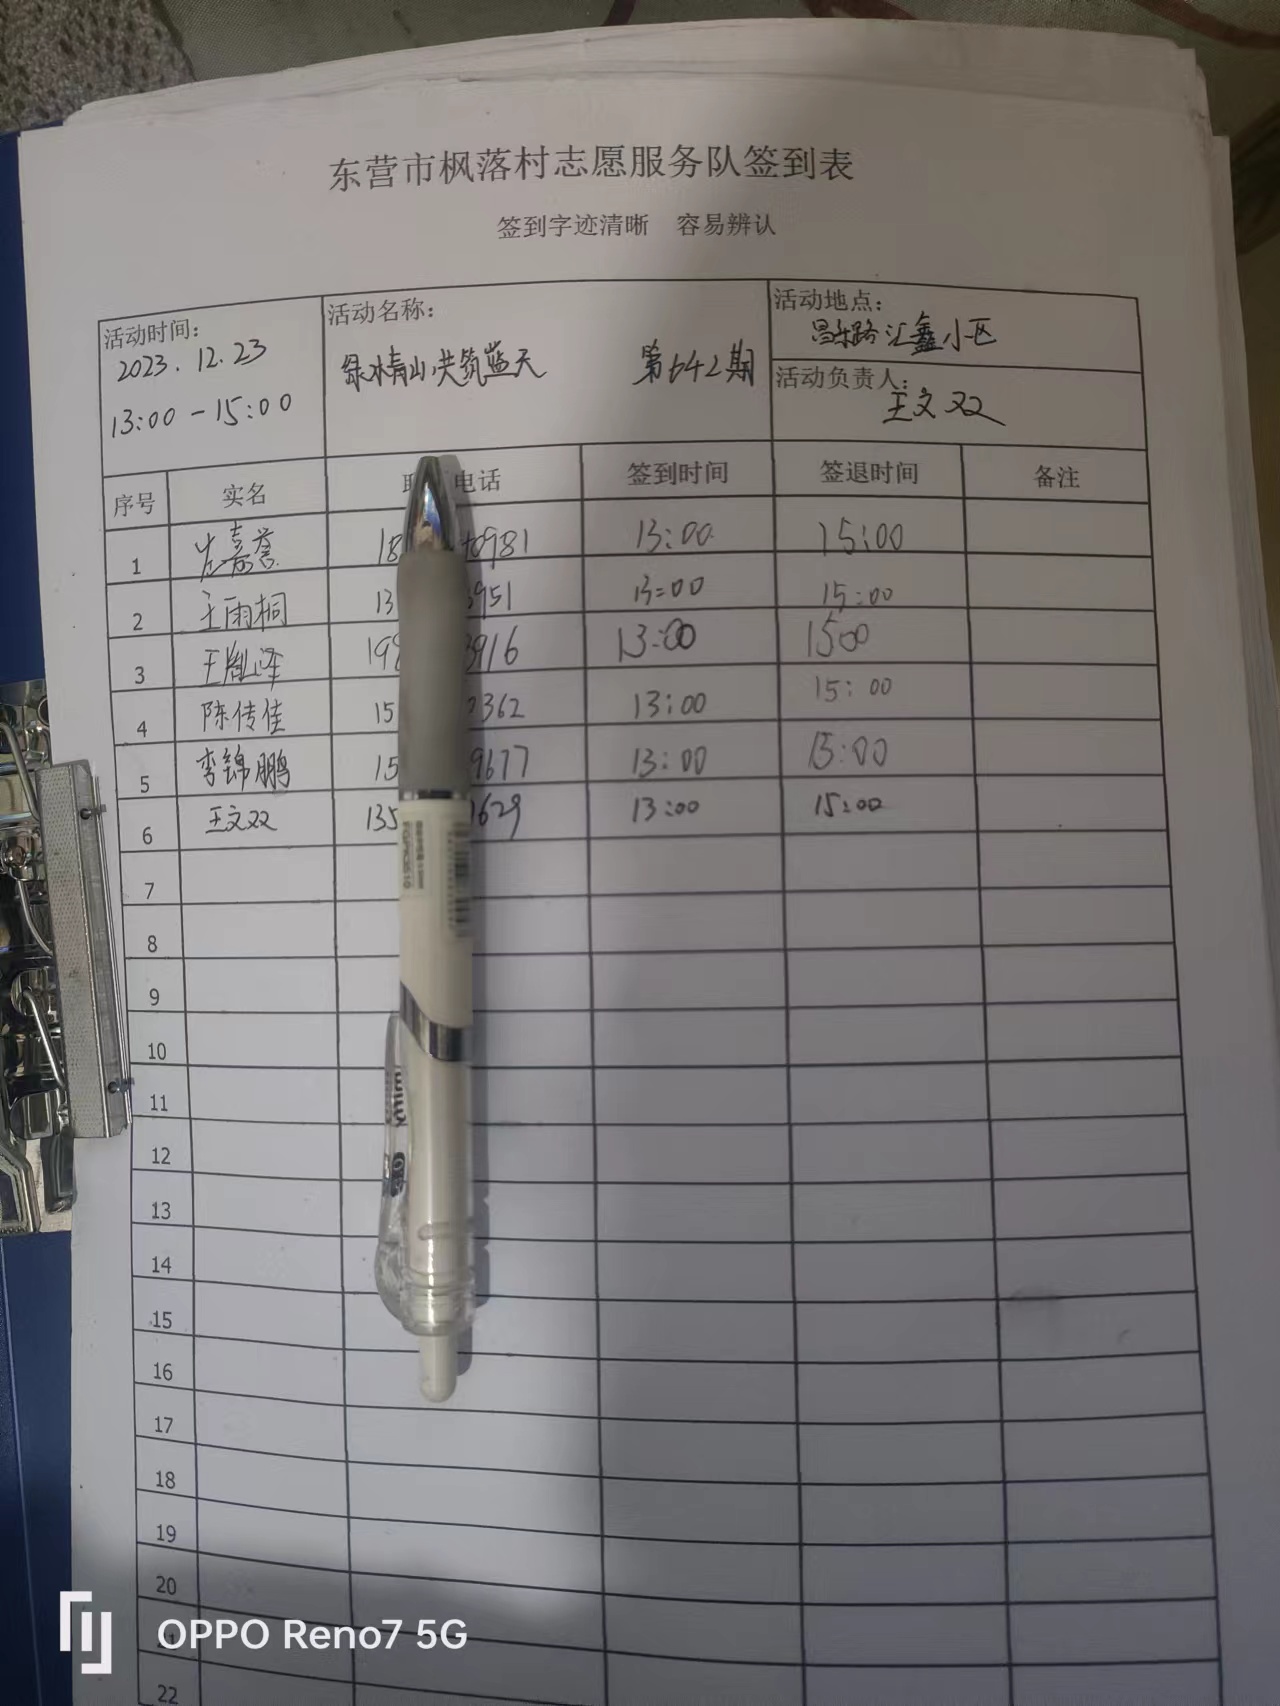 东营市枫落村志愿服务队签到表
签到字迹清晰 容易辨认
活动时间:
2023.12.23
13:00-15:00
活动名称:
绿水青山,共筑蓝天 第642期
活动地点:
昌乐路汇鑫小区
活动负责人:
王文双
序号 实名 电话 签到时间 签退时间 备注
1 嘉誉 18 0981 13:00 15:00
2 王雨桐 13 951 13:00 15:00
3 王胤泽 19 3916 13:00 1500
4 陈传佳 15 362 13:00 15:00
5 李锦鹏 15 9677 13:00 15:00
6 王文双 135 1629 13:00 15:00
7
8
9
10
11
12
13
14
15
16
17
18
19
20
21
22
OPPO Reno7 5G